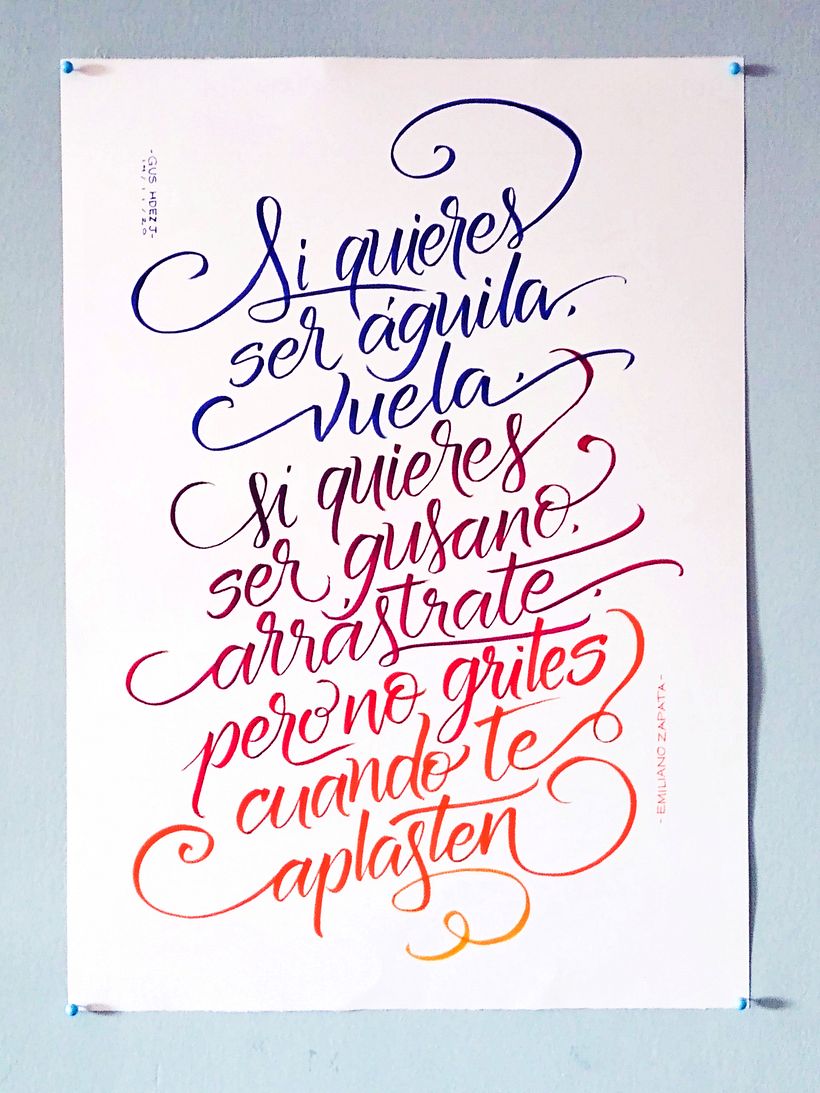 -GUS HDEZ J-
Si quieres
ser águila,
vuela,
si quieres
ser gusano,
arrástrate,
pero no grites
cuando te
aplasten
- EMILIANO ZAPATA -